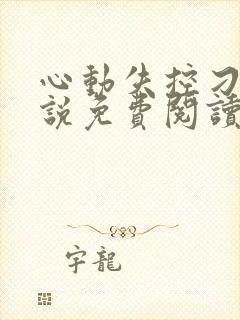 心動失控刁
說免費閱讀
字龍